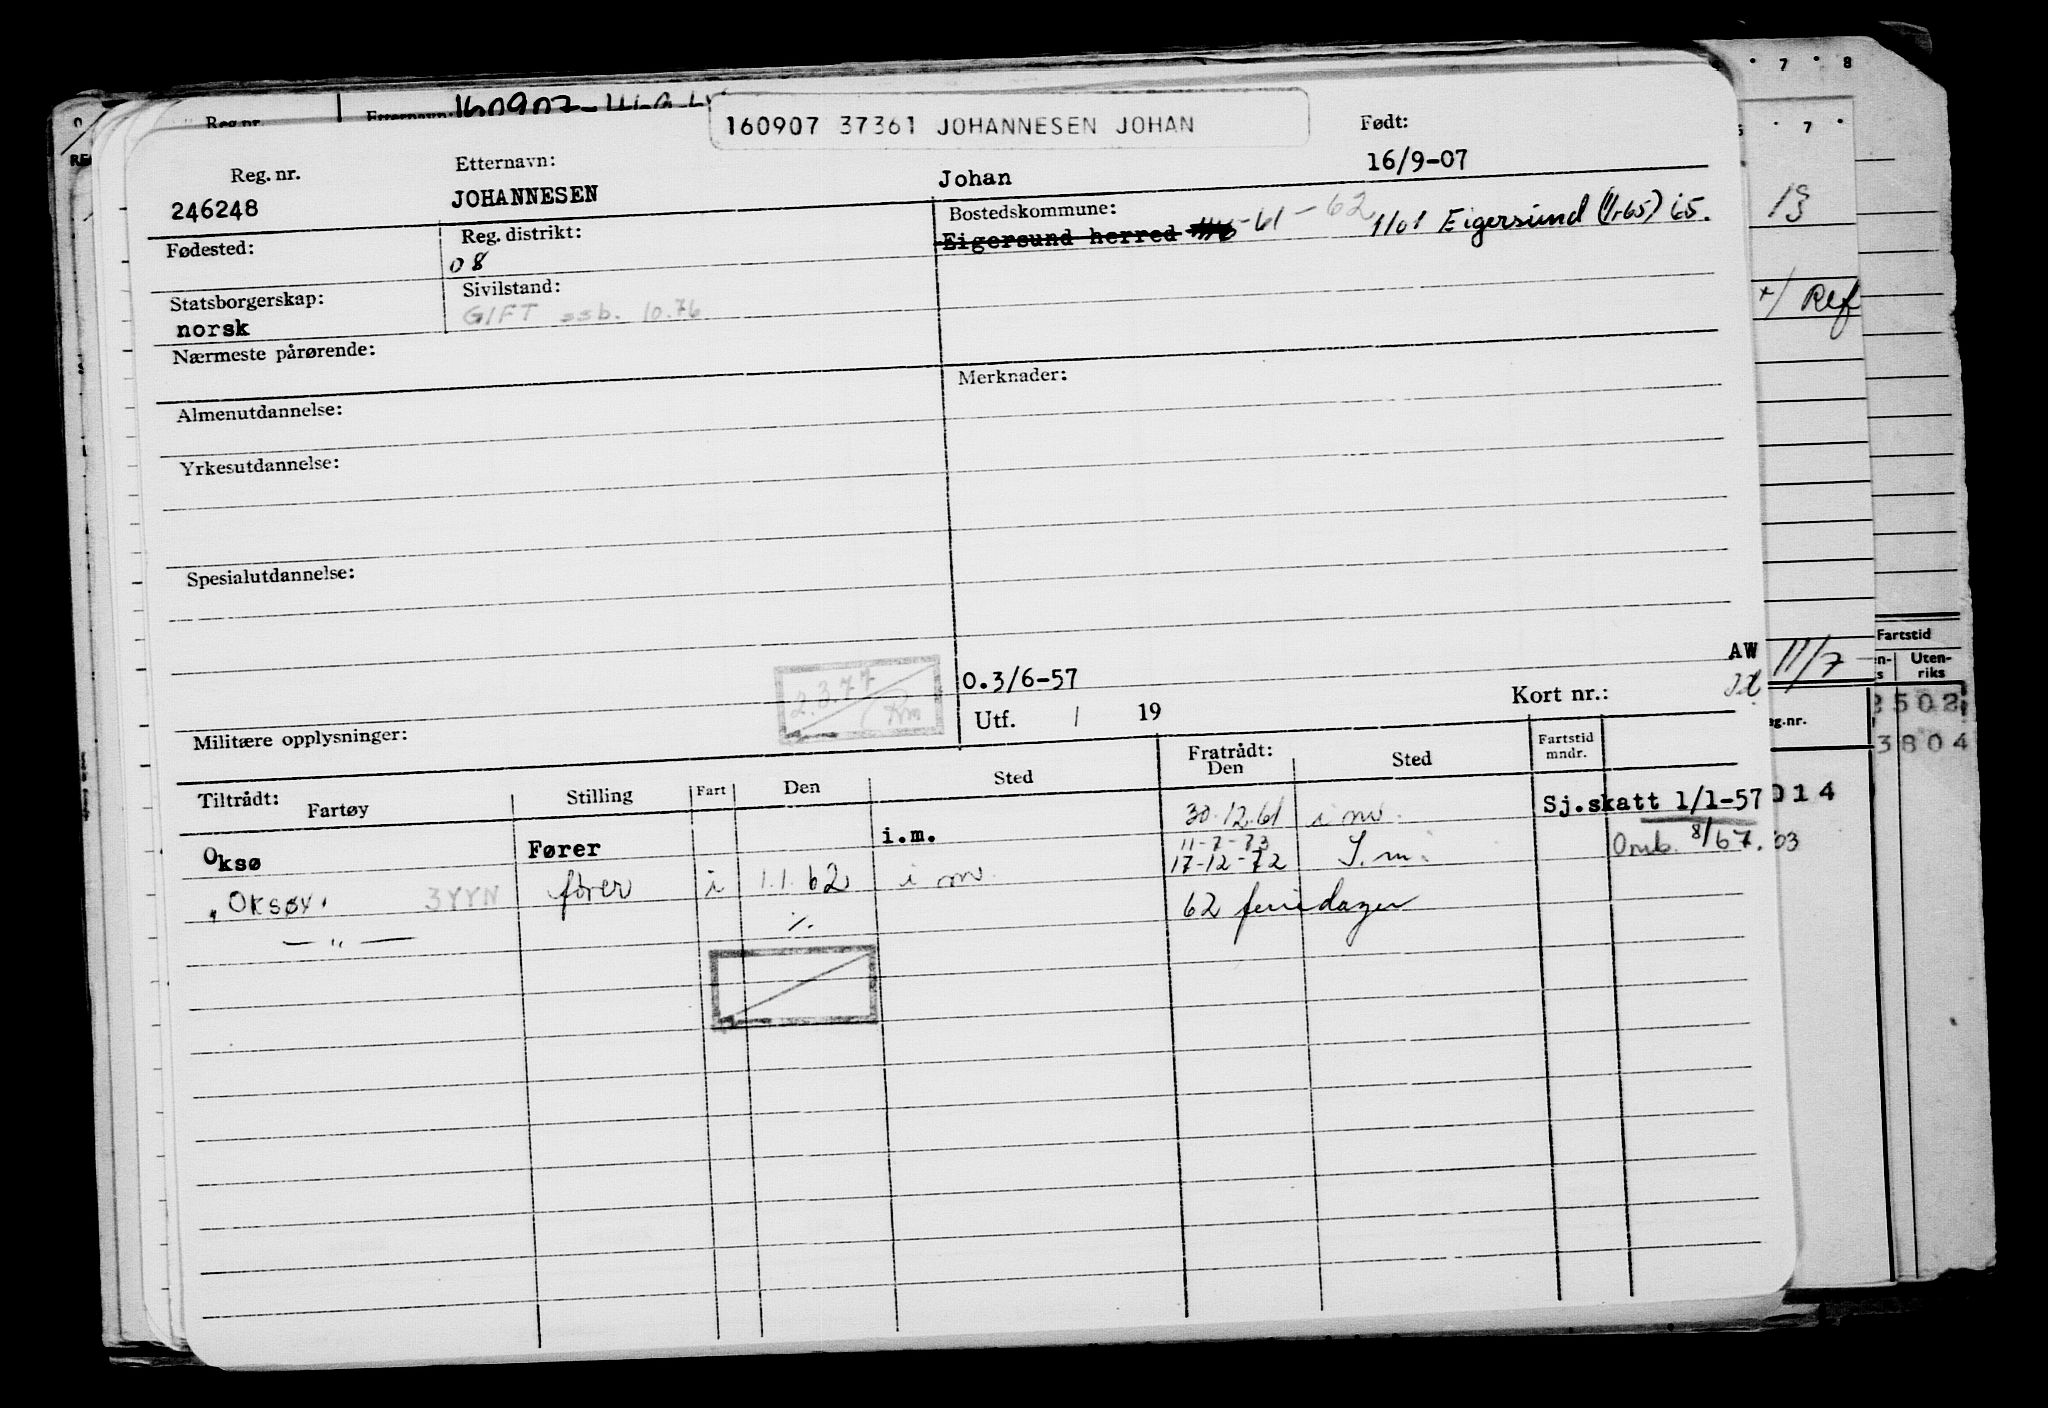 160907 37361 JOHANNESEN JOHAN
Reg. nr.
246248
Etternavn:
JOHANNESEN
Johan
Født:
16/9-07
Fødested:
Reg. distrikt:
08
Bostedskommune:
Eigersund herred -61-62 1101 Eigersund (1/1-65) 65.
Statsborgerskap:
norsk
Sivilstand:
GIFT ssb. 10.76
Nærmeste pårørende:
Merknader:
Almenutdannelse:
Yrkesutdannelse:
Spesialutdannelse:
2.3.77
Rm
O.3/6-57
AW
Utf. / 19
Kort nr.:
Militære opplysninger:
Tiltrådt:
Fartøy Stilling Fart Den Sted
Fratrådt:
Den Sted
Fartstid
mndr.
Oksø Fører i.m. 30.12.61 i m.
Sj.skatt 1/1-57
11-7-73
"Oksøy" 3YYN fører i 1.1.62 i m. 17-12-72 I.m.
Omb. 8/67.
— " — ⁒ 62 feriedager
Reg.nr.
Etternavn:
7 8
7
13
Ref
11/7
Fartstid
Uten-
riks
2502
3804
014
03